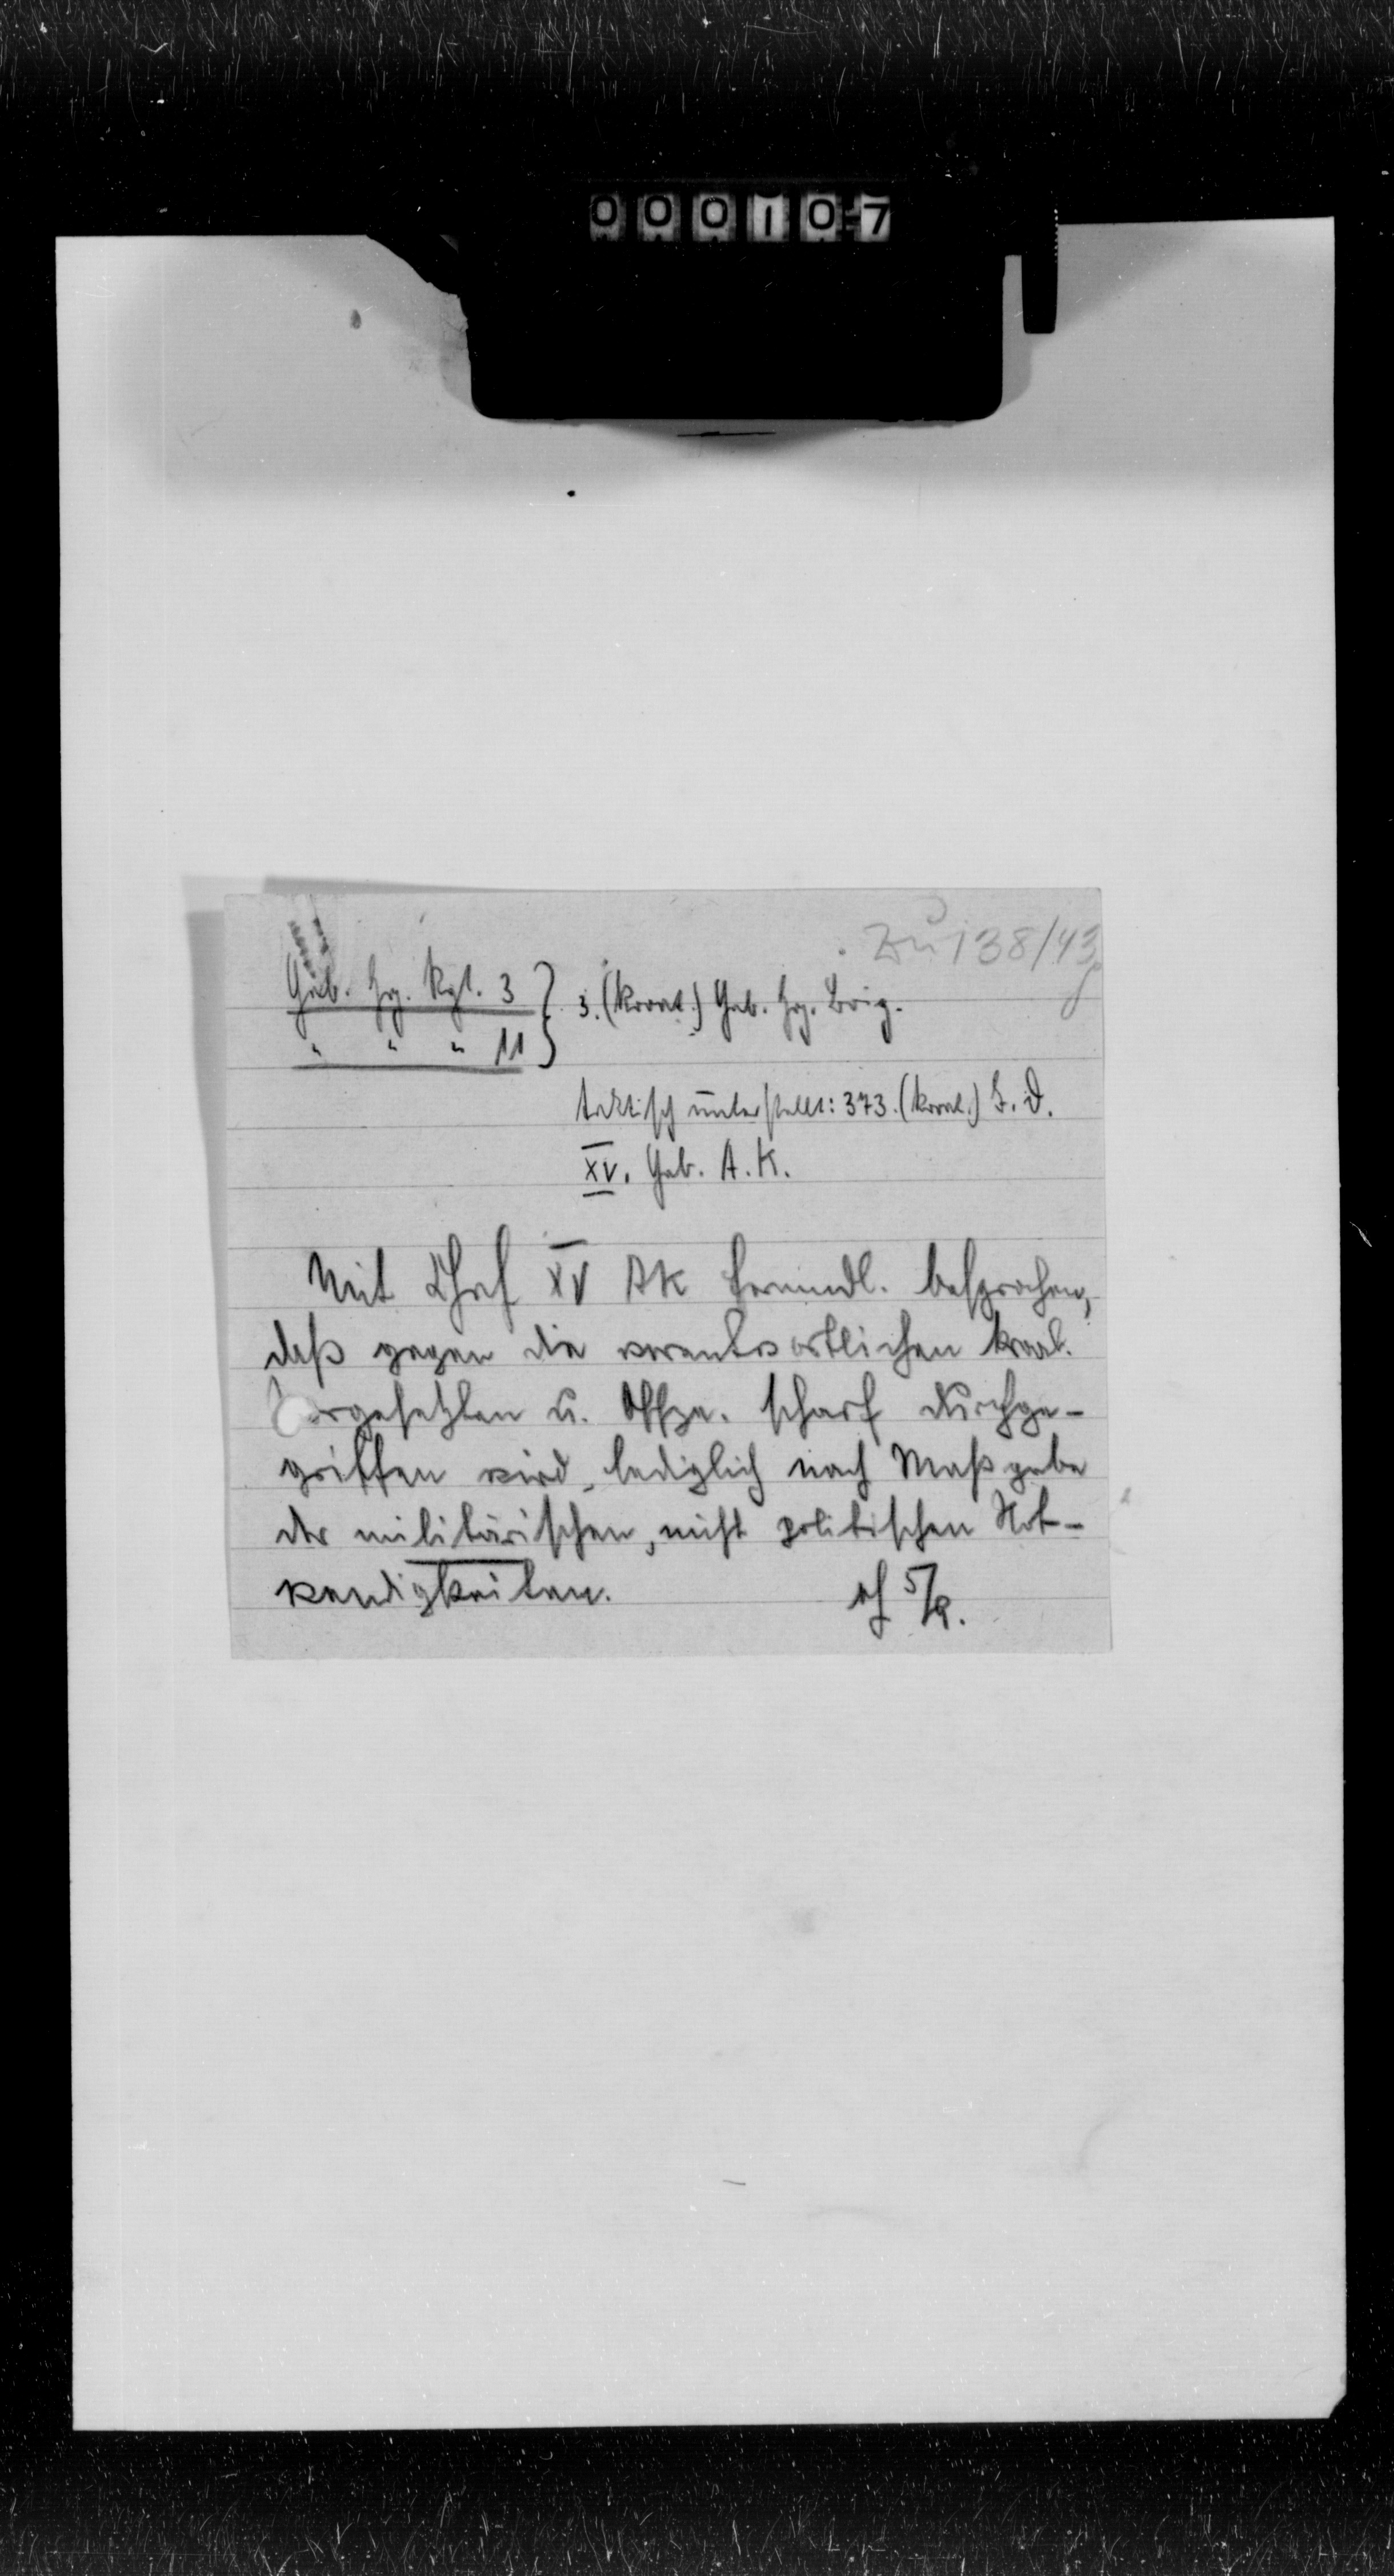 000107
zu 138/43
Geb. Jg. Rgt. 3 } 3. (kroat.) Geb. Jg. Brig.
" " " 11 }
taktisch unterstellt: 373. (kroat.) I. D.
XV. Geb. A. K.
Mit Chef XV AK fernmdl. besprochen,
daß gegen die verantwortlichen kroat.
Vorgesetzten u. Offze. scharf durchge-
griffen wird, lediglich nach Maßgabe
der militärischen, nicht politischen Not-
wendigkeiten.
5/9.